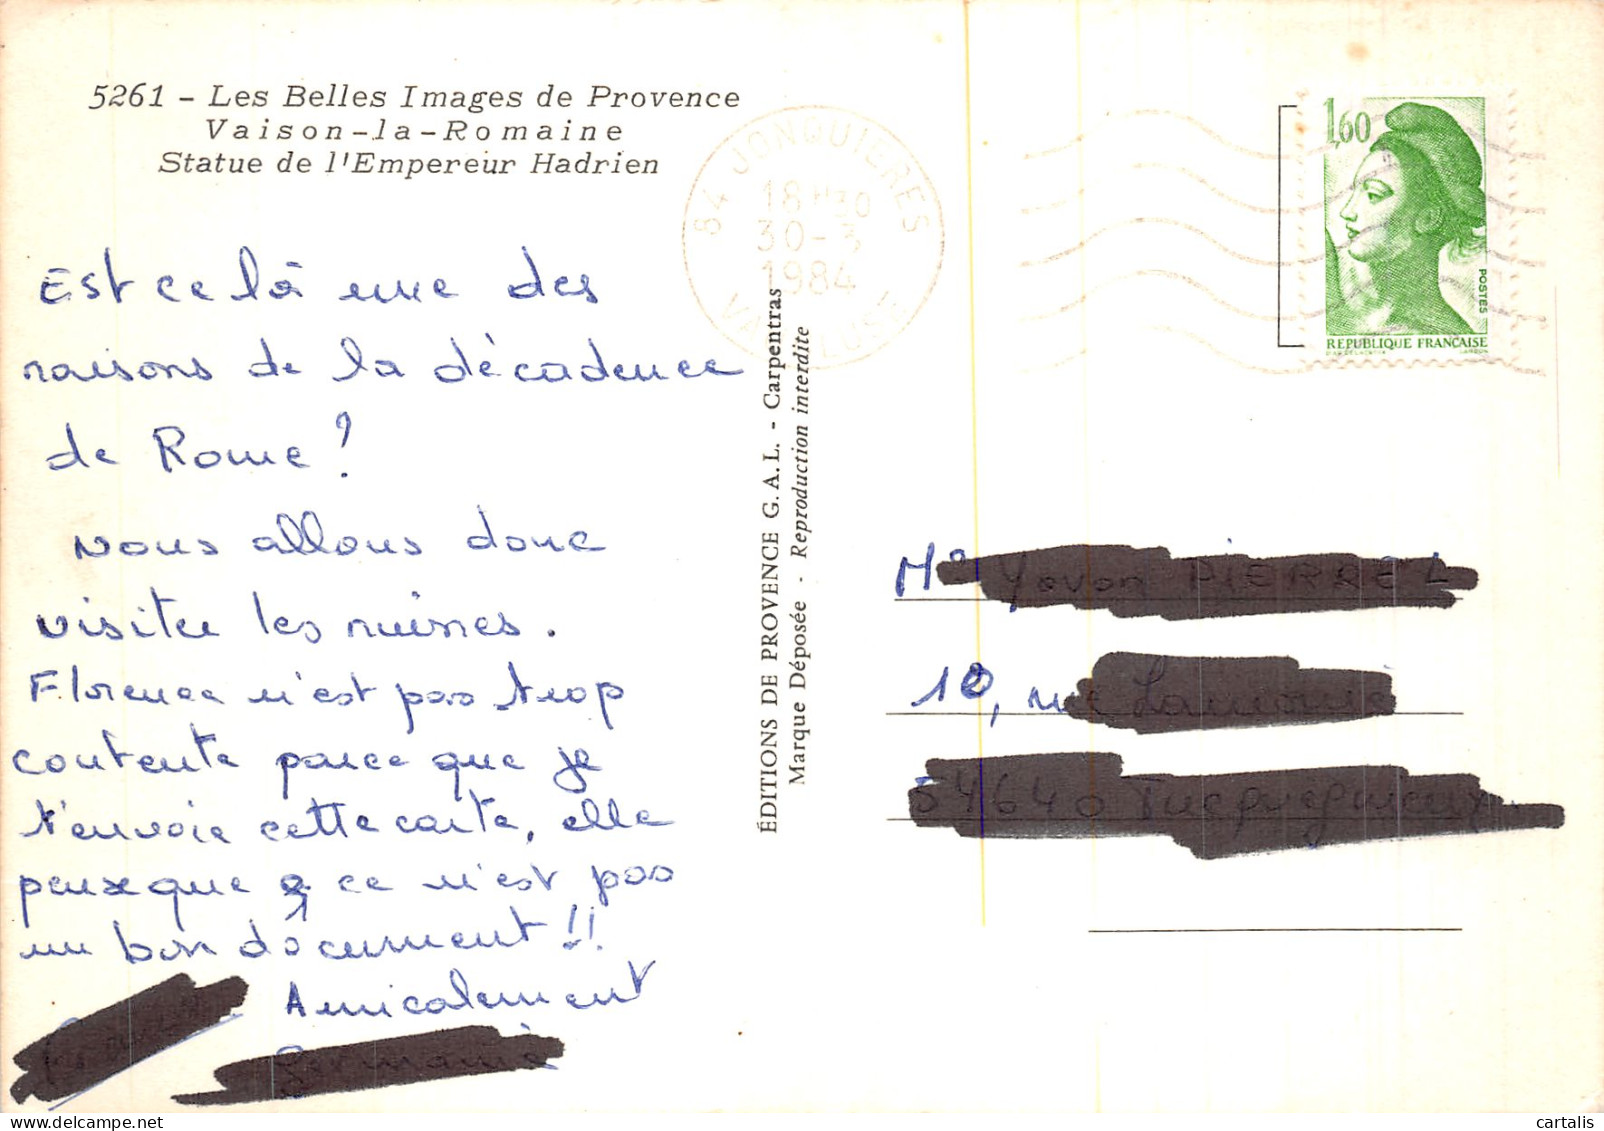 5261 - Les Belles Images de Provence
Vaison-la-Romaine
Statue de l'Empereur Hadrien
Est ce là une des
raisons de la décadence
de Rome ?
Nous allons donc
visiter les ruines.
Florence n'est pas trop
contente parce que je
t'envoie cette carte, elle
pense que ce n'est pas
un bon document !!
Amicalement
ÉDITIONS DE PROVENCE G.A.L. - Carpentras
Marque Déposée - Reproduction interdite
84 JONQUIERES
18H30
30-3
1984
VAUCLUSE
1,60
POSTES
REPUBLIQUE FRANÇAISE
10, rue
cartalis